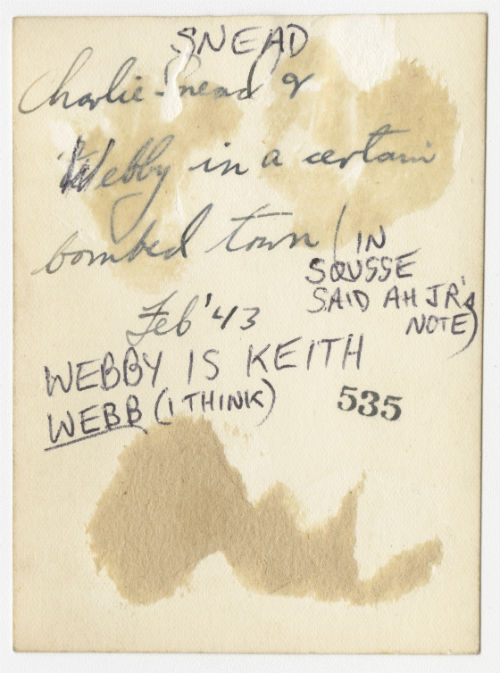 SNEAD
Charlie Snead &
Webby in a certain
bombed town (IN
SOUSSE
SAID AH JR'S
NOTE)
Feb '43
WEBBY IS KEITH
WEBB (I THINK)
535